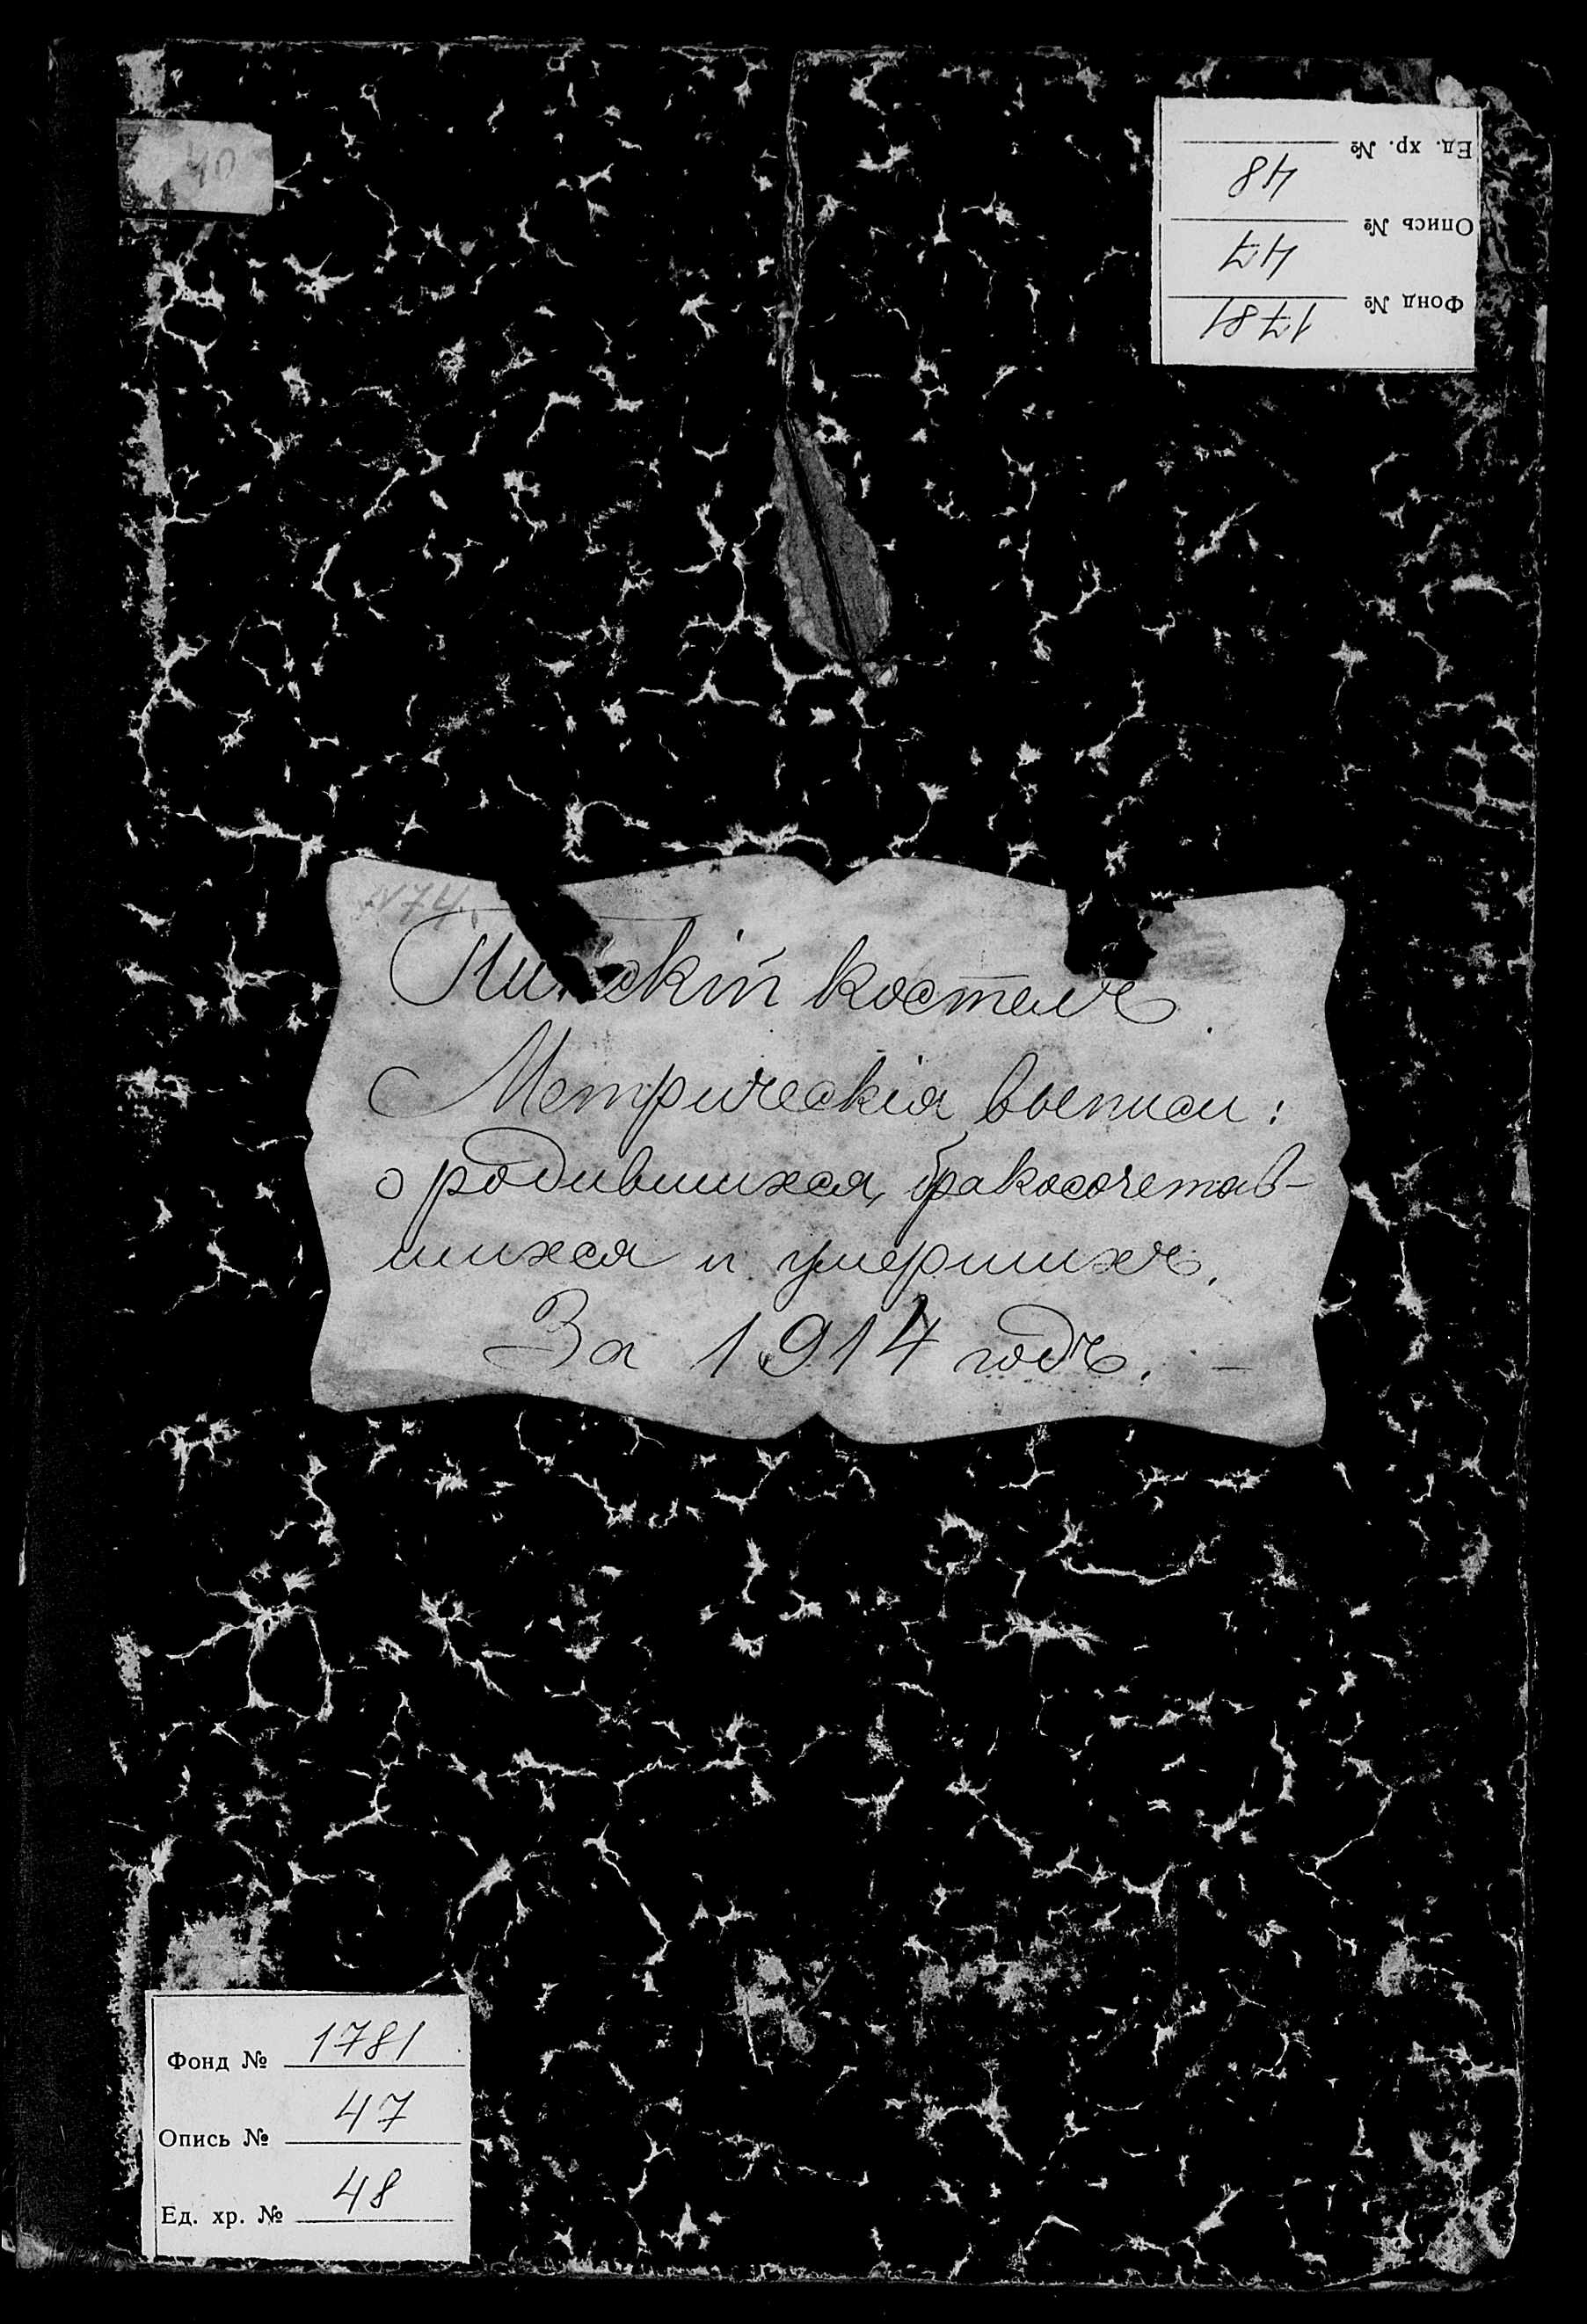 40
Ед. хр. № 48
Опись № 47
Фонд № 1781
№74.
Пинскій костелъ.
Метрическія выписи:
о родившихся, бракосочетав-
шихся и умершихъ.
За 1914 годъ. –
Фонд № 1781
Опись № 47
Ед. хр. № 48